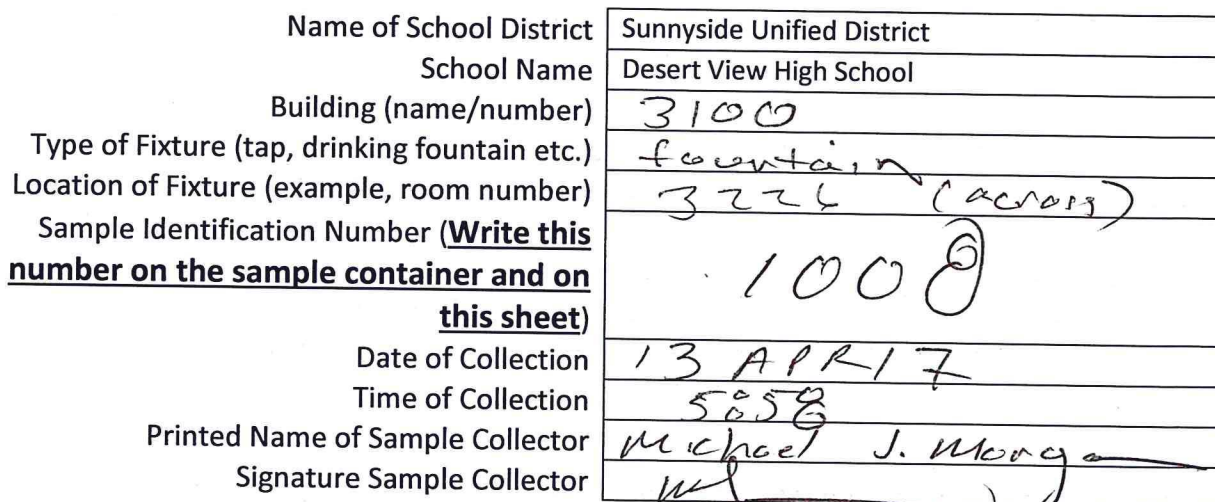 Name of School District Sunnyside Unified District
School Name Desert View High School
Building (name/number) 3100
Type of Fixture (tap, drinking fountain etc.) fountain
Location of Fixture (example, room number) 3226 (across)
Sample Identification Number (Write this
number on the sample container and on
this sheet)
1008
Date of Collection 13 APR 17
Time of Collection 5:58
Printed Name of Sample Collector Michael J.
Signature Sample Collector